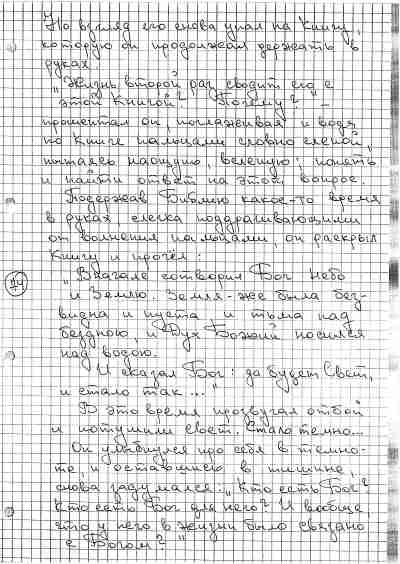 Но взгляд его снова упал на Книгу,
которую он продолжал держать в
руках.
„Жизнь второй раз сводит его с
этой Книгой? Почему?" –
прошептал он, поглаживая и водя
по Книге пальцами словно слепой,
пытаясь наощупь, вслепую: понять
и найти ответ на этот вопрос.
Подержав Библию какое-то время
в руках слегка поддрагивающими
от волнения пальцами, он раскрыл
Книгу и прочёл:
74
„Вначале сотворил Бог Небо
и Землю. Земля-же была без-
видна и пуста и тьма над
бездною, и Дух Божий носился
над водою.
И сказал Бог: да будет Свет,
и стало так..."
В это время прозвучал отбой
и потушили свет. Стало темно...
Он улыбнулся про себя в темно-
те, и оставшись в тишине,
снова задумался: „Кто есть Бог?
Кто есть Бог для него? И вообще,
что у него в жизни было связано
с Богом?"